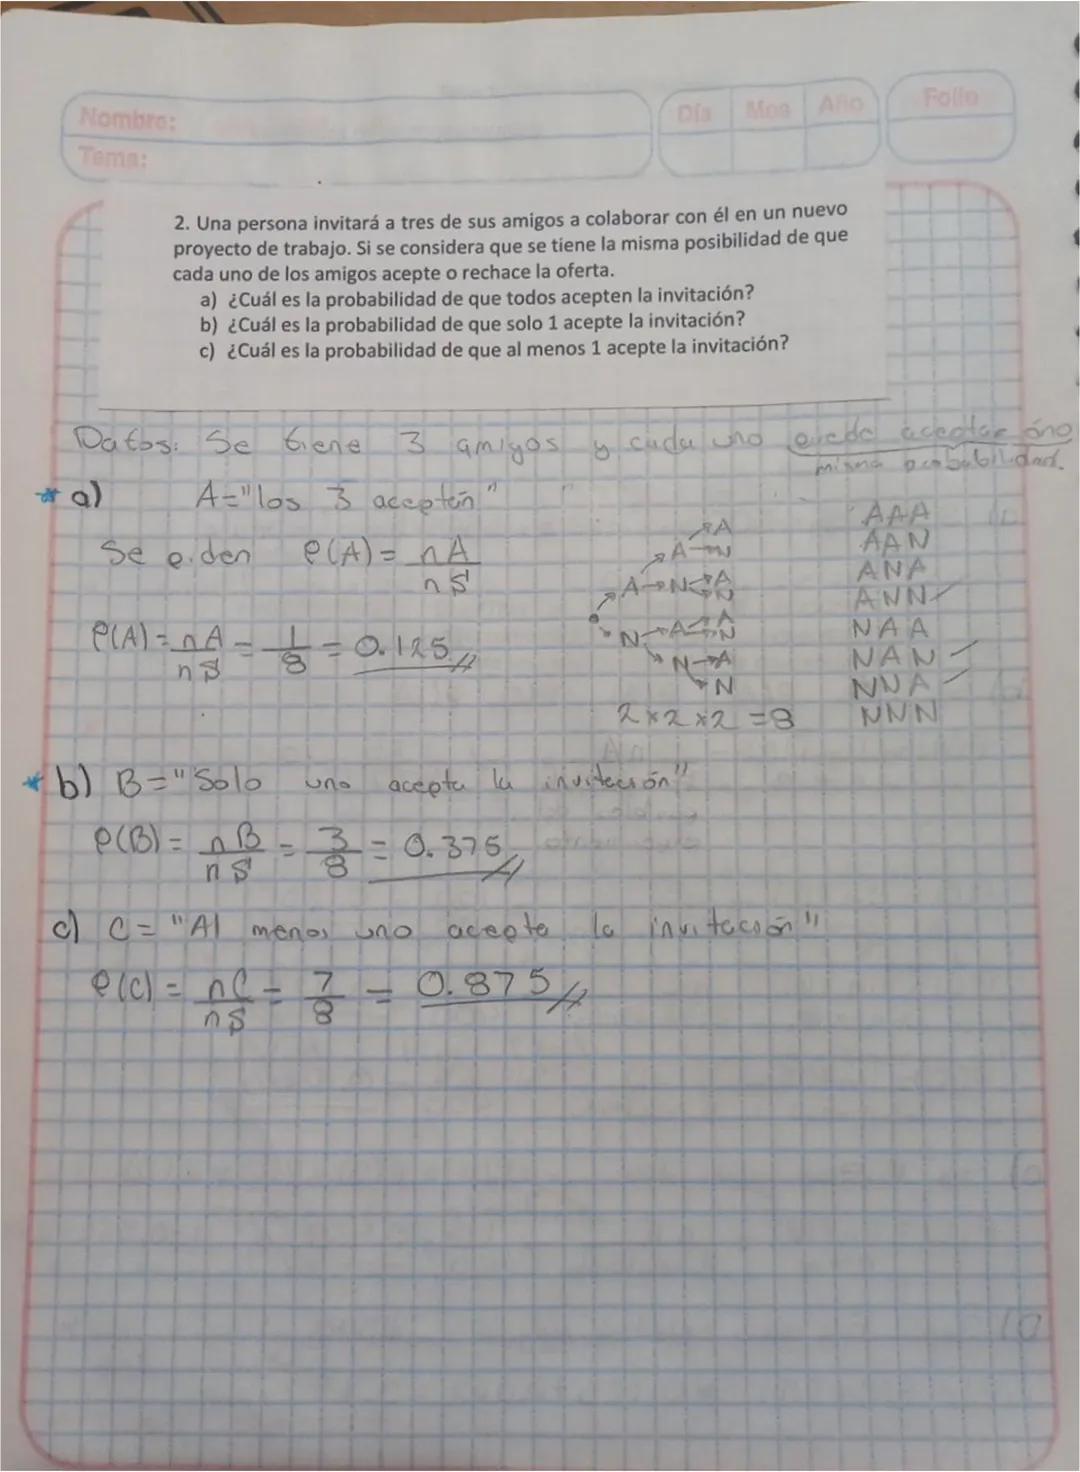 Nombre:
Día Mes Año
Folio
Tema:
2. Una persona invitará a tres de sus amigos a colaborar con él en un nuevo
proyecto de trabajo. Si se considera que se tiene la misma posibilidad de que
cada uno de los amigos acepte o rechace la oferta.
a) ¿Cuál es la probabilidad de que todos acepten la invitación?
b) ¿Cuál es la probabilidad de que solo 1 acepte la invitación?
c) ¿Cuál es la probabilidad de que al menos 1 acepte la invitación?
Datos: Se tiene 3 amigos y cada uno puede aceptar ó no
misma probabilidad.
* a) A="los 3 acepten"
Se piden P(A) = nA/nS
P(A) = nA/nS = 1/8 = 0.125
A
A → N
A → N A N
N → A A N
N → A
N
2 x 2 x 2 = 8
AAA
AAN
ANA
ANN
NAA
NAN
NNA
NNN
* b) B = "Solo uno acepta la invitación"
P(B) = nB/nS = 3/8 = 0.375
c) C = "Al menos uno acepte la invitación"
P(C) = nC/nS = 7/8 = 0.875